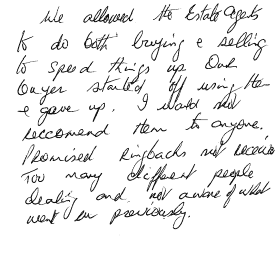 We allowed the Estate Agents
to do both buying & selling
to speed things up. Our
buyer started off using them
& gave up. I would not
reccomend them to anyone.
Promised ringbacks not receive
Too many different people
dealing and not aware of what
went on previously.